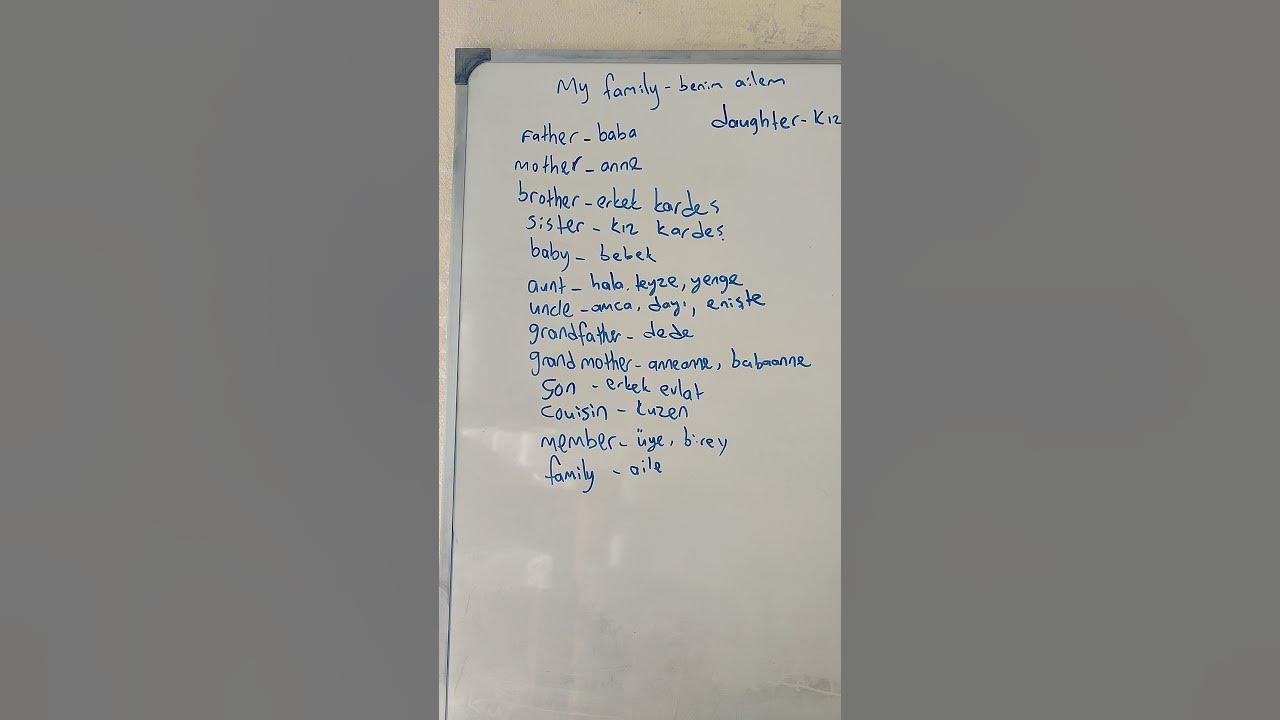 My family - benim ailem
daughter - kız
Father - baba
mother - anne
brother - erkek kardeş
sister - kız kardeş
baby - bebek
aunt - hala, teyze, yenge
uncle - amca, dayı, enişte
grandfather - dede
grandmother - anneanne, babaanne
son - erkek evlat
couisin - kuzen
member - üye, birey
family - aile